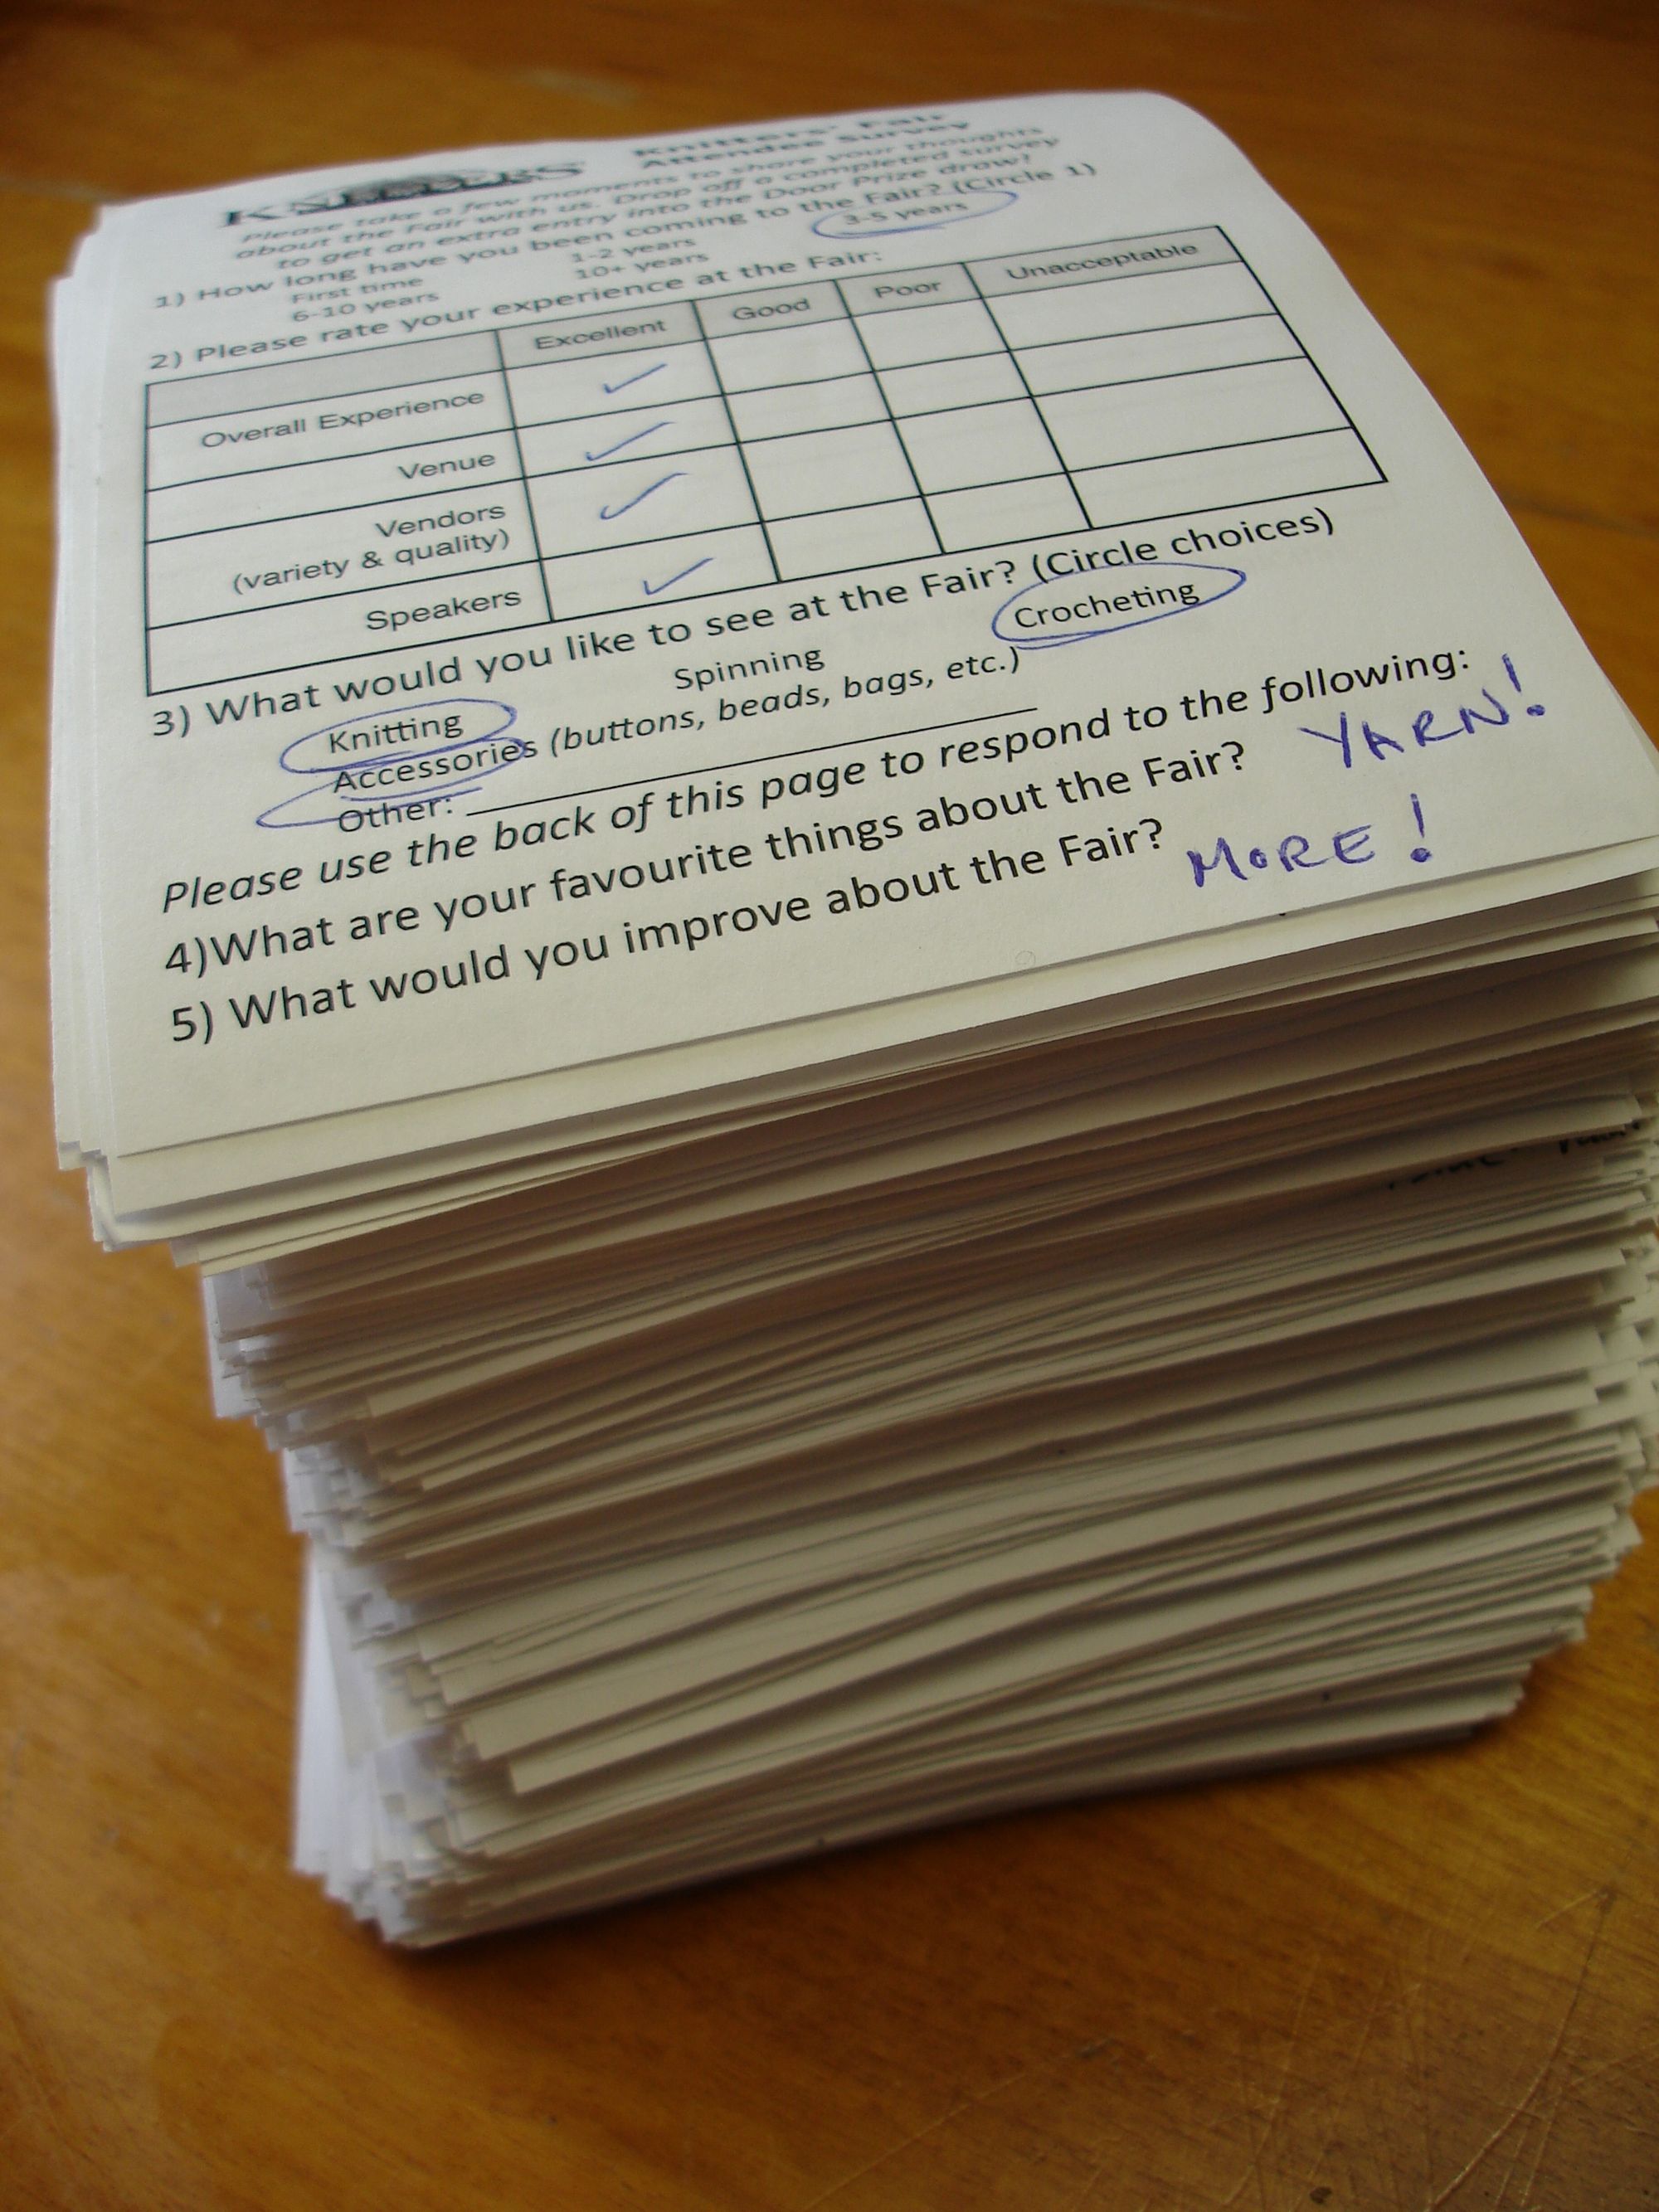 KNITTERS
Knitters' Fair
Attendee Survey
Please take a few moments to share your thoughts
about the Fair with us. Drop off a completed survey
to get an extra entry into the Door Prize draw!
1) How long have you been coming to the Fair? (Circle 1)
First time 1-2 years 3-5 years
6-10 years 10+ years
2) Please rate your experience at the Fair:
Excellent Good Poor Unacceptable
Overall Experience
Venue
Vendors
(variety & quality)
Speakers
3) What would you like to see at the Fair? (Circle choices)
Knitting Spinning Crocheting
Accessories (buttons, beads, bags, etc.)
Other:
Please use the back of this page to respond to the following:
4)What are your favourite things about the Fair? YARN!
5) What would you improve about the Fair? MORE!